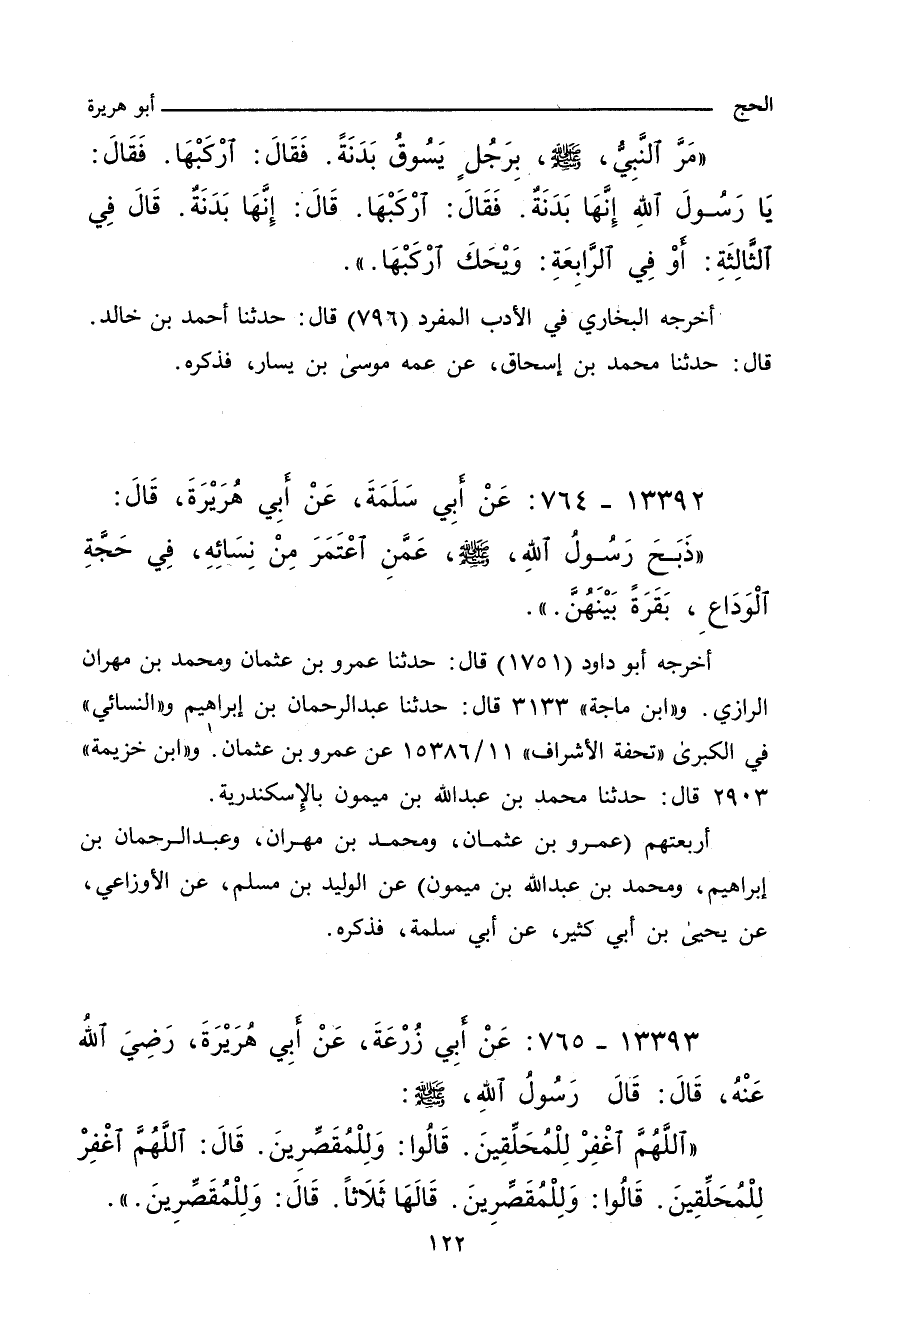 الحج ـــــــــــــــــــــــــــــــــــــــــــــــ أبو هريرة
«مَرَّ ٱلنَّبِيُّ، ﷺ، بِرَجُلٍ يَسُوقُ بَدَنَةً. فَقَالَ: ٱرْكَبْهَا. فَقَالَ:
يَا رَسُولَ ٱللهِ إِنَّهَا بَدَنَةٌ. فَقَالَ: ٱرْكَبْهَا. قَالَ: إِنَّهَا بَدَنَةٌ. قَالَ فِي
ٱلثَّالِثَةِ: أَوْ فِي ٱلرَّابِعَةِ: وَيْحَكَ ٱرْكَبْهَا.».
أخرجه البخاري في الأدب المفرد (٧٩٦) قال: حدثنا أحمد بن خالد.
قال: حدثنا محمد بن إسحاق، عن عمه موسىٰ بن يسار، فذكره.
١٣٣٩٢ - ٧٦٤: عَنْ أَبِي سَلَمَةَ، عَنْ أَبِي هُرَيْرَةَ، قَالَ:
«ذَبَحَ رَسُولُ ٱللهِ، ﷺ، عَمَّنِ ٱعْتَمَرَ مِنْ نِسَائِهِ، فِي حَجَّةِ
ٱلْوَدَاعِ، بَقَرَةً بَيْنَهُنَّ.».
أخرجه أبو داود (١٧٥١) قال: حدثنا عمرو بن عثمان ومحمد بن مهران
الرازي. و«ابن ماجة» ٣١٣٣ قال: حدثنا عبدالرحمان بن إبراهيم و«النسائي»
في الكبرىٰ «تحفة الأشراف» ١٥٣٨٦/١١ عن عمرو بن عثمان. و«ابن خزيمة»
٢٩٠٣ قال: حدثنا محمد بن عبدالله بن ميمون بالإسكندرية.
أربعتهم (عمرو بن عثمان، ومحمد بن مهران، وعبدالرحمان بن
إبراهيم، ومحمد بن عبدالله بن ميمون) عن الوليد بن مسلم، عن الأوزاعي،
عن يحيىٰ بن أبي كثير، عن أبي سلمة، فذكره.
١٣٣٩٣ - ٧٦٥: عَنْ أَبِي زُرْعَةَ، عَنْ أَبِي هُرَيْرَةَ، رَضِيَ ٱللهُ
عَنْهُ، قَالَ: قَالَ رَسُولُ ٱللهِ، ﷺ:
«ٱللَّهُمَّ ٱغْفِرْ لِلْمُحَلِّقِينَ. قَالُوا: وَلِلْمُقَصِّرِينَ. قَالَ: ٱللَّهُمَّ ٱغْفِرْ
لِلْمُحَلِّقِينَ. قَالُوا: وَلِلْمُقَصِّرِينَ. قَالَهَا ثَلَاثاً. قَالَ: وَلِلْمُقَصِّرِينَ.».
١٢٢